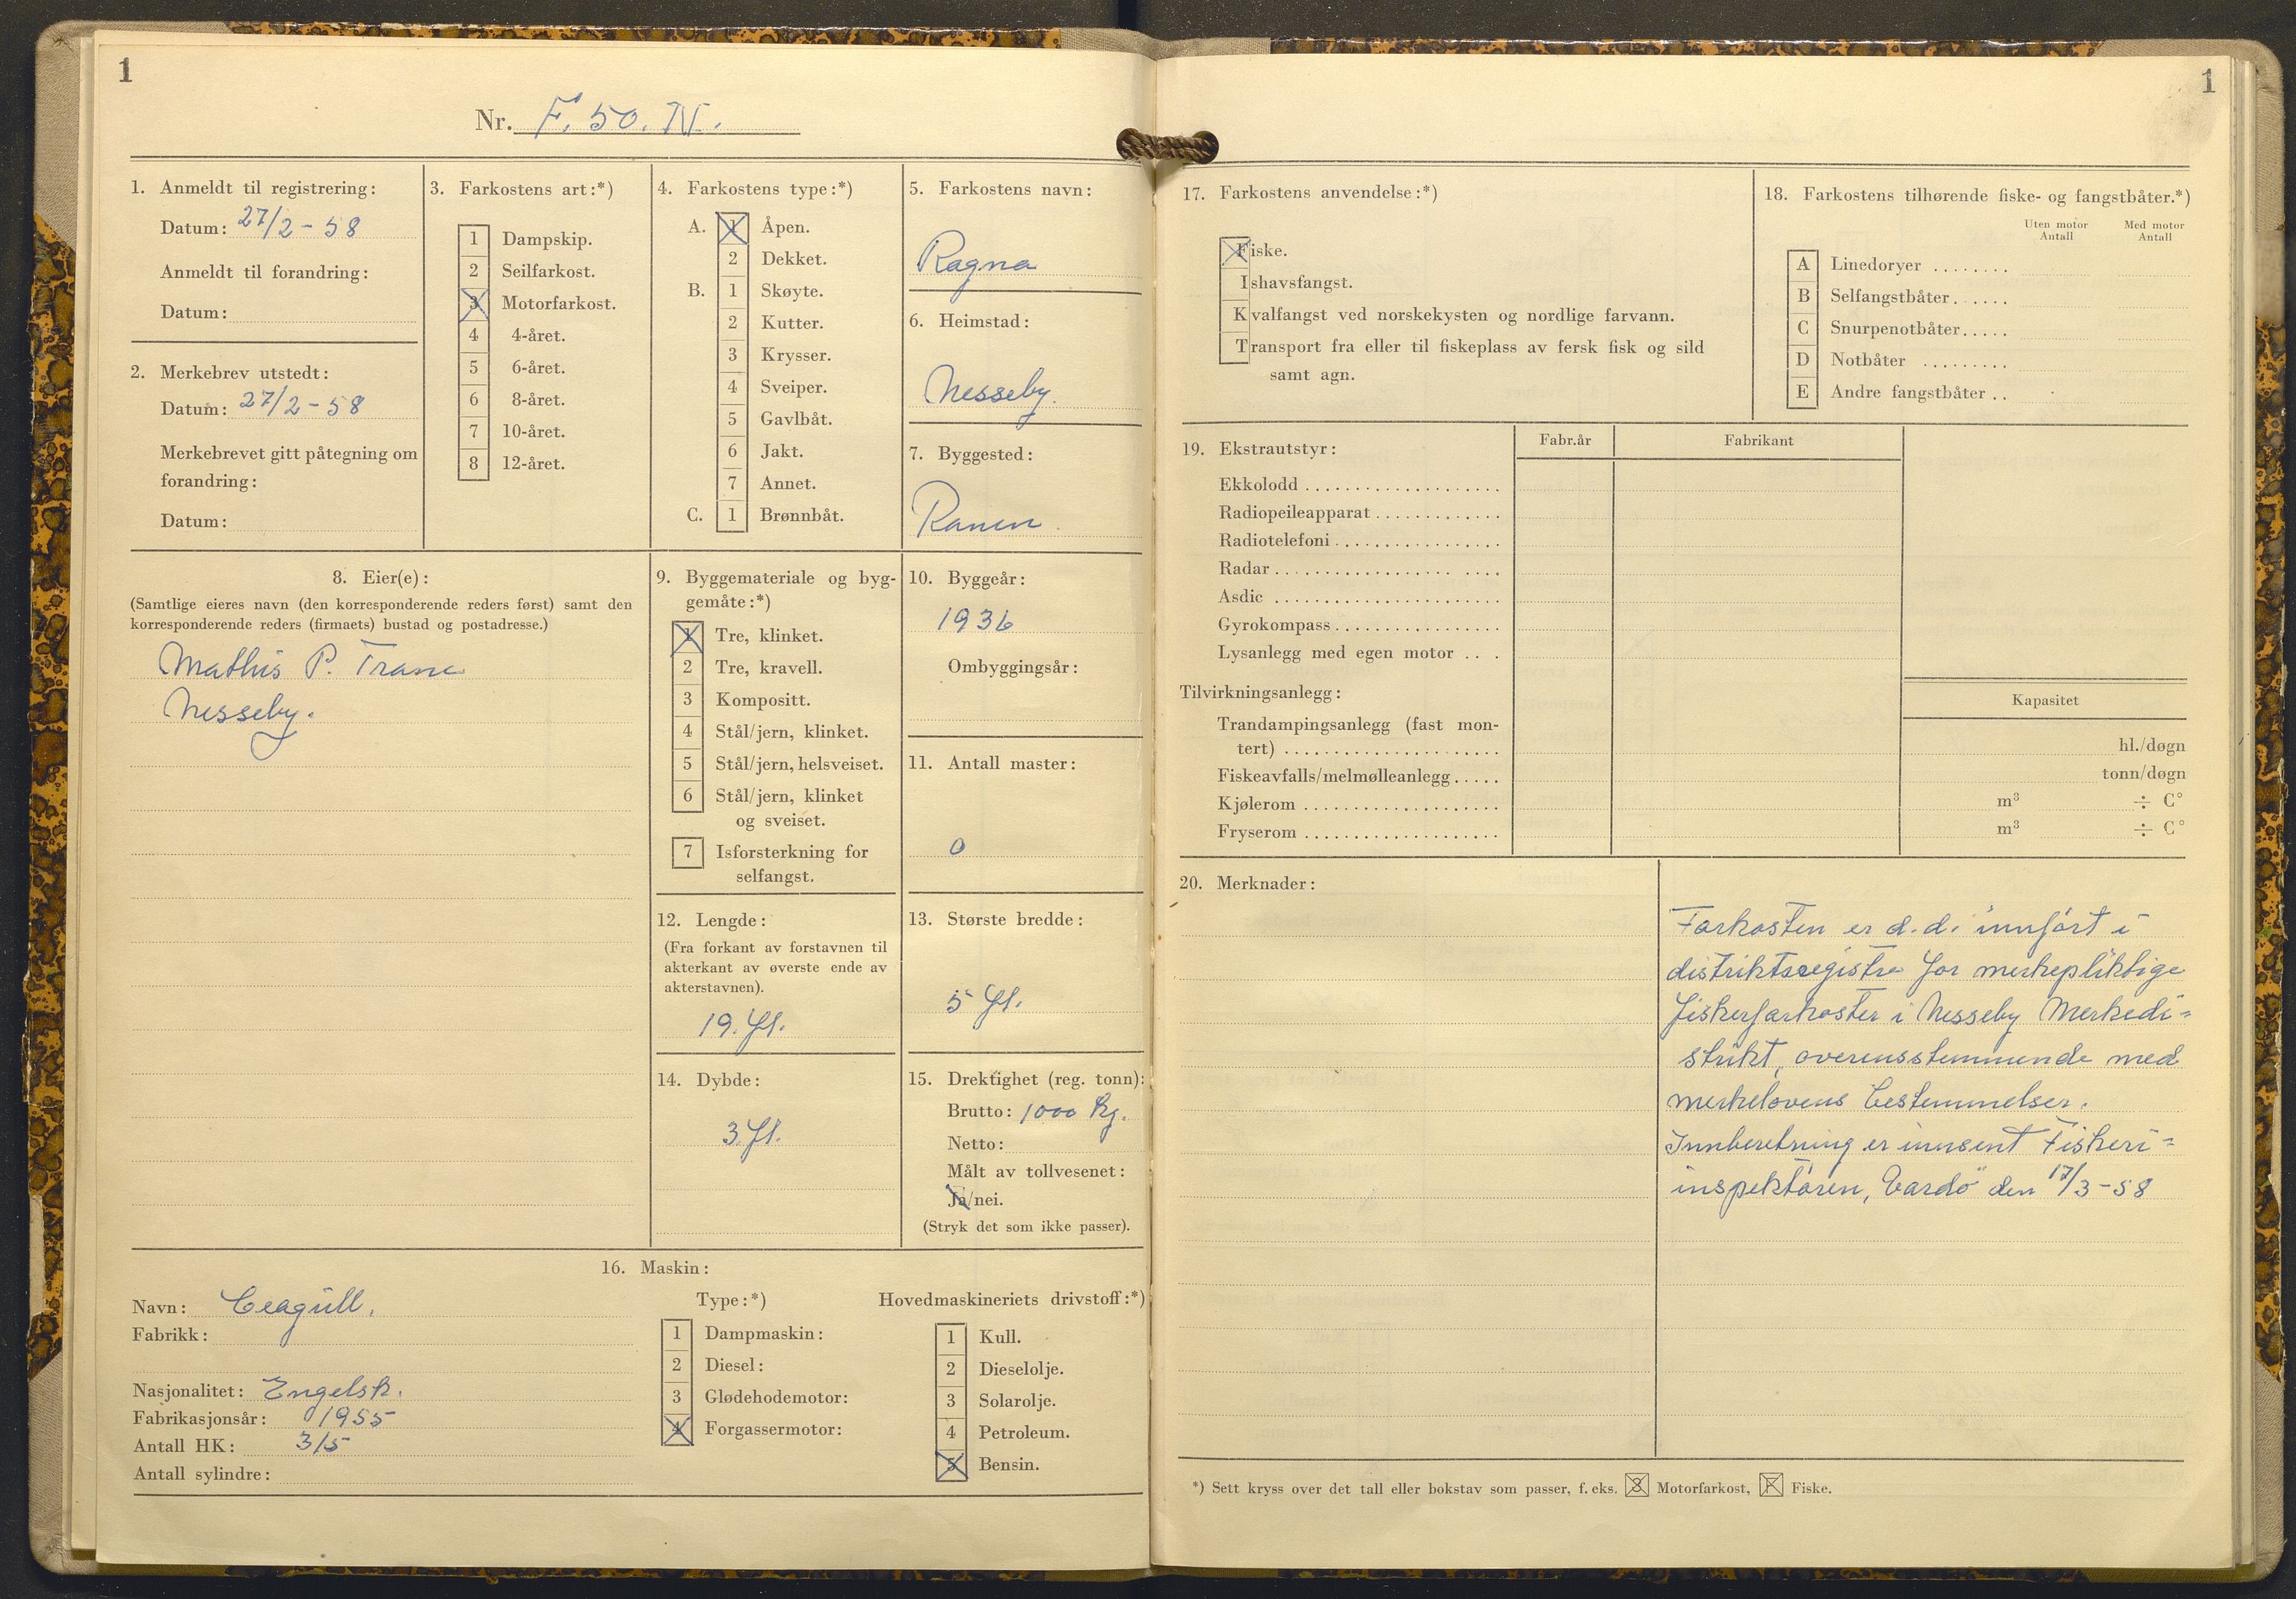 1
Nr. F. 50. N.
1. Anmeldt til registrering:
Datum: 27/2 - 58
Anmeldt til forandring:
Datum:
2. Merkebrev utstedt:
Datum: 27/2 - 58
Merkebrevet gitt påtegning om
forandring:
Datum:
3. Farkostens art:*)
1 Dampskip.
2 Seilfarkost.
3 Motorfarkost.
4 4-året.
5 6-året.
6 8-året.
7 10-året.
8 12-året.
4. Farkostens type:*)
A. 1 Åpen.
2 Dekket.
B. 1 Skøyte.
2 Kutter.
3 Krysser.
4 Sveiper.
5 Gavlbåt.
6 Jakt.
7 Annet.
C. 1 Brønnbåt.
5. Farkostens navn:
Ragna
6. Heimstad:
Nesseby.
7. Byggested:
Ranen.
8. Eier(e):
(Samtlige eieres navn (den korresponderende reders først) samt den
korresponderende reders (firmaets) bustad og postadresse.)
Mathis P. Trane
Nesseby.
9. Byggemateriale og byg-
gemåte:*)
1 Tre, klinket.
2 Tre, kravell.
3 Kompositt.
4 Stål/jern, klinket.
5 Stål/jern, helsveiset.
6 Stål/jern, klinket
og sveiset.
7 Isforsterkning for
selfangst.
10. Byggeår:
1936
Ombyggingsår:
11. Antall master:
0
12. Lengde:
(Fra forkant av forstavnen til
akterkant av øverste ende av
akterstavnen).
19. ft.
13. Største bredde:
5 ft.
14. Dybde:
3. ft.
15. Drektighet (reg. tonn):
Brutto: 1000 kg.
Netto:
Målt av tollvesenet:
Ja/nei.
(Stryk det som ikke passer).
16. Maskin:
Navn: Ceagull.
Fabrikk:
Nasjonalitet: Engelsk.
Fabrikasjonsår: 1955
Antall HK: 3/5
Antall sylindre:
Type:*)
1 Dampmaskin:
2 Diesel:
3 Glødehodemotor:
4 Forgassermotor:
Hovedmaskineriets drivstoff:*)
1 Kull.
2 Dieselolje.
3 Solarolje.
4 Petroleum.
5 Bensin.
1
17. Farkostens anvendelse:*)
Fiske.
Ishavsfangst.
Kvalfangst ved norskekysten og nordlige farvann.
Transport fra eller til fiskeplass av fersk fisk og sild
samt agn.
18. Farkostens tilhørende fiske- og fangstbåter.*)
Uten motor Med motor
Antall Antall
A Linedoryer ........
B Selfangstbåter......
C Snurpenotbåter.....
D Notbåter .........
E Andre fangstbåter ..
19. Ekstrautstyr: Fabr.år Fabrikant
Ekkolodd ....................
Radiopeileapparat.............
Radiotelefoni.................
Radar.......................
Asdic .......................
Gyrokompass.................
Lysanlegg med egen motor ...
Tilvirkningsanlegg: Kapasitet
Trandampingsanlegg (fast mon-
tert) ...................... hl./døgn
Fiskeavfalls/melmølleanlegg..... tonn/døgn
Kjølerom .................... m³ ÷ C°
Fryserom .................... m³ ÷ C°
20. Merknader:
Farkosten er d.d. innført i
distriktsregistre for merkepliktige
fiskerfarkoster i Nesseby Merkedi=
strikt, overensstemmende med
merkelovens bestemmelser.
Innberetning er innsent Fiskeri=
inspektøren, Vardø den 17/3-58
*) Sett kryss over det tall eller bokstav som passer, f. eks. 3 Motorfarkost, F Fiske.